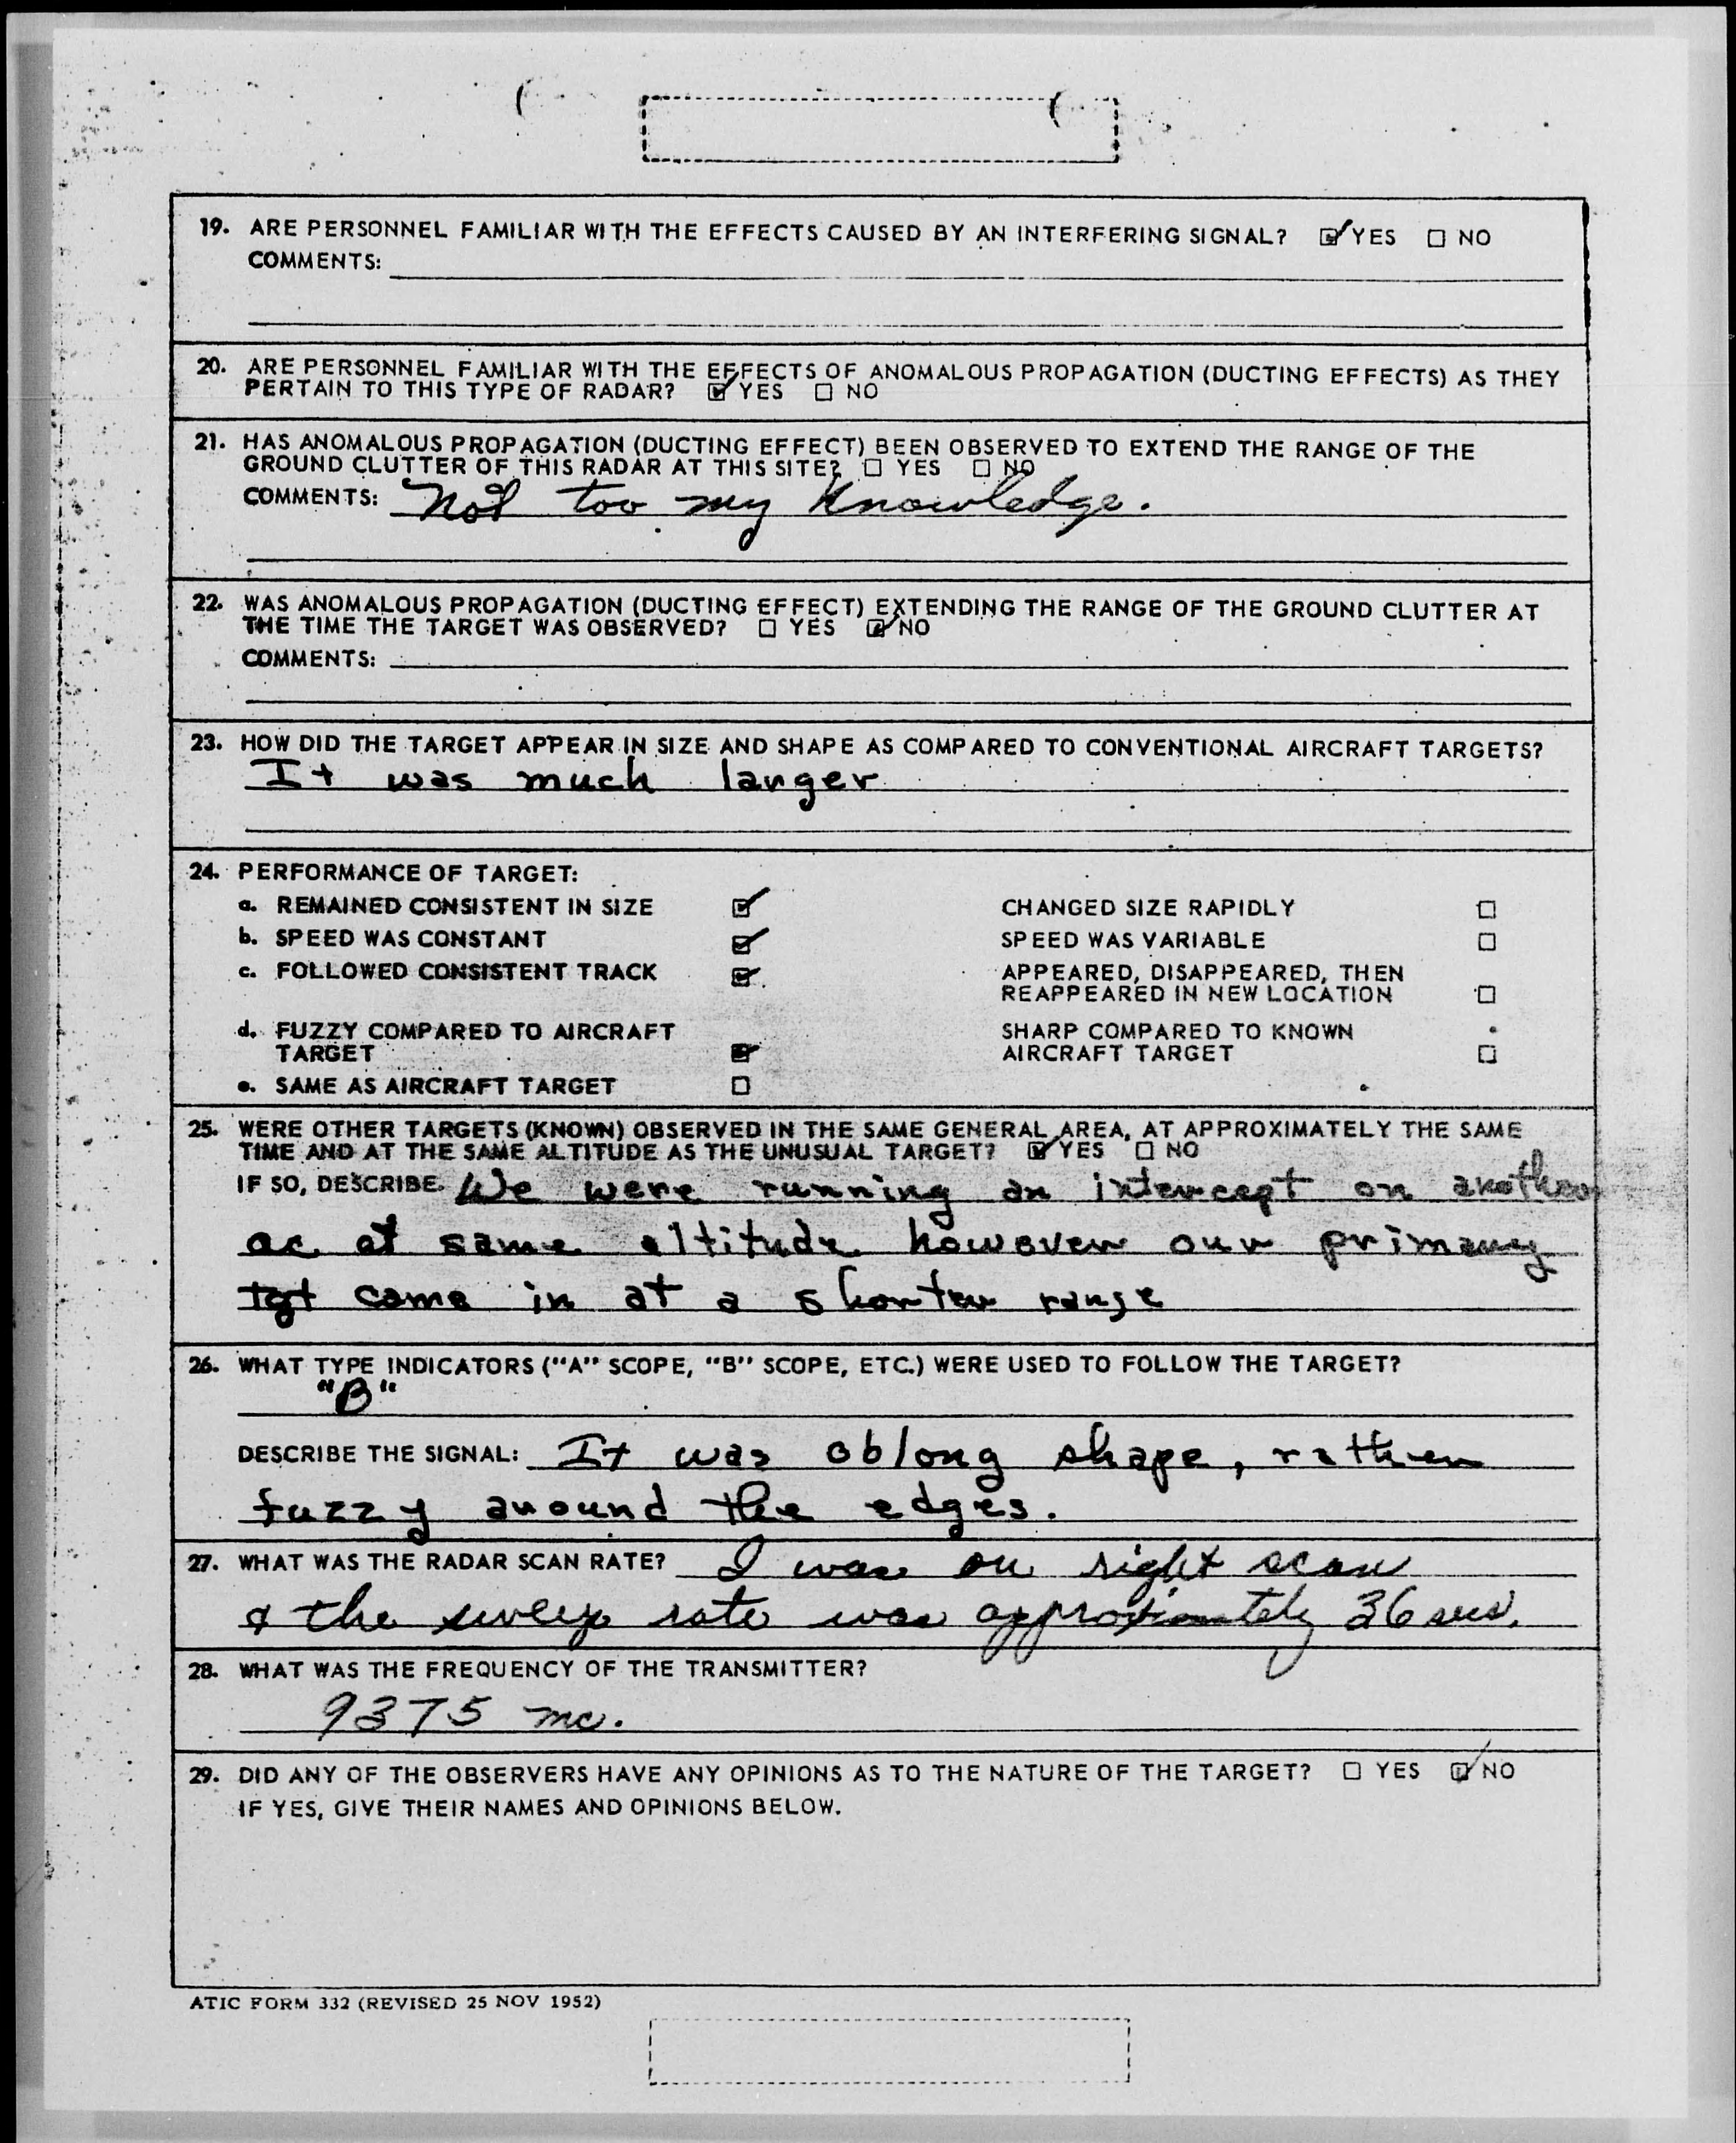 19. ARE PERSONNEL FAMILIAR WITH THE EFFECTS CAUSED BY AN INTERFERING SIGNAL? ☑ YES ☐ NO
COMMENTS:
20. ARE PERSONNEL FAMILIAR WITH THE EFFECTS OF ANOMALOUS PROPAGATION (DUCTING EFFECTS) AS THEY
PERTAIN TO THIS TYPE OF RADAR? ☑ YES ☐ NO
21. HAS ANOMALOUS PROPAGATION (DUCTING EFFECT) BEEN OBSERVED TO EXTEND THE RANGE OF THE
GROUND CLUTTER OF THIS RADAR AT THIS SITE? ☐ YES ☐ NO
COMMENTS: Not too my knowledge.
22. WAS ANOMALOUS PROPAGATION (DUCTING EFFECT) EXTENDING THE RANGE OF THE GROUND CLUTTER AT
THE TIME THE TARGET WAS OBSERVED? ☐ YES ☑ NO
COMMENTS:
23. HOW DID THE TARGET APPEAR IN SIZE AND SHAPE AS COMPARED TO CONVENTIONAL AIRCRAFT TARGETS?
It was much larger
24. PERFORMANCE OF TARGET:
a. REMAINED CONSISTENT IN SIZE ☑ CHANGED SIZE RAPIDLY ☐
b. SPEED WAS CONSTANT ☑ SPEED WAS VARIABLE ☐
c. FOLLOWED CONSISTENT TRACK ☑ APPEARED, DISAPPEARED, THEN
REAPPEARED IN NEW LOCATION ☐
d. FUZZY COMPARED TO AIRCRAFT SHARP COMPARED TO KNOWN
TARGET ☑ AIRCRAFT TARGET ☐
e. SAME AS AIRCRAFT TARGET ☐
25. WERE OTHER TARGETS (KNOWN) OBSERVED IN THE SAME GENERAL AREA, AT APPROXIMATELY THE SAME
TIME AND AT THE SAME ALTITUDE AS THE UNUSUAL TARGET? ☑ YES ☐ NO
IF SO, DESCRIBE. We were running an intercept on another
ac at same altitude however our primary
tgt came in at a shorter range
26. WHAT TYPE INDICATORS ("A" SCOPE, "B" SCOPE, ETC.) WERE USED TO FOLLOW THE TARGET?
"B"
DESCRIBE THE SIGNAL: It was oblong shape, rather
fuzzy around the edges.
27. WHAT WAS THE RADAR SCAN RATE? I was on right scan
& the sweep rate was approximately 36 secs.
28. WHAT WAS THE FREQUENCY OF THE TRANSMITTER?
9375 mc.
29. DID ANY OF THE OBSERVERS HAVE ANY OPINIONS AS TO THE NATURE OF THE TARGET? ☐ YES ☑ NO
IF YES, GIVE THEIR NAMES AND OPINIONS BELOW.
ATIC FORM 332 (REVISED 25 NOV 1952)